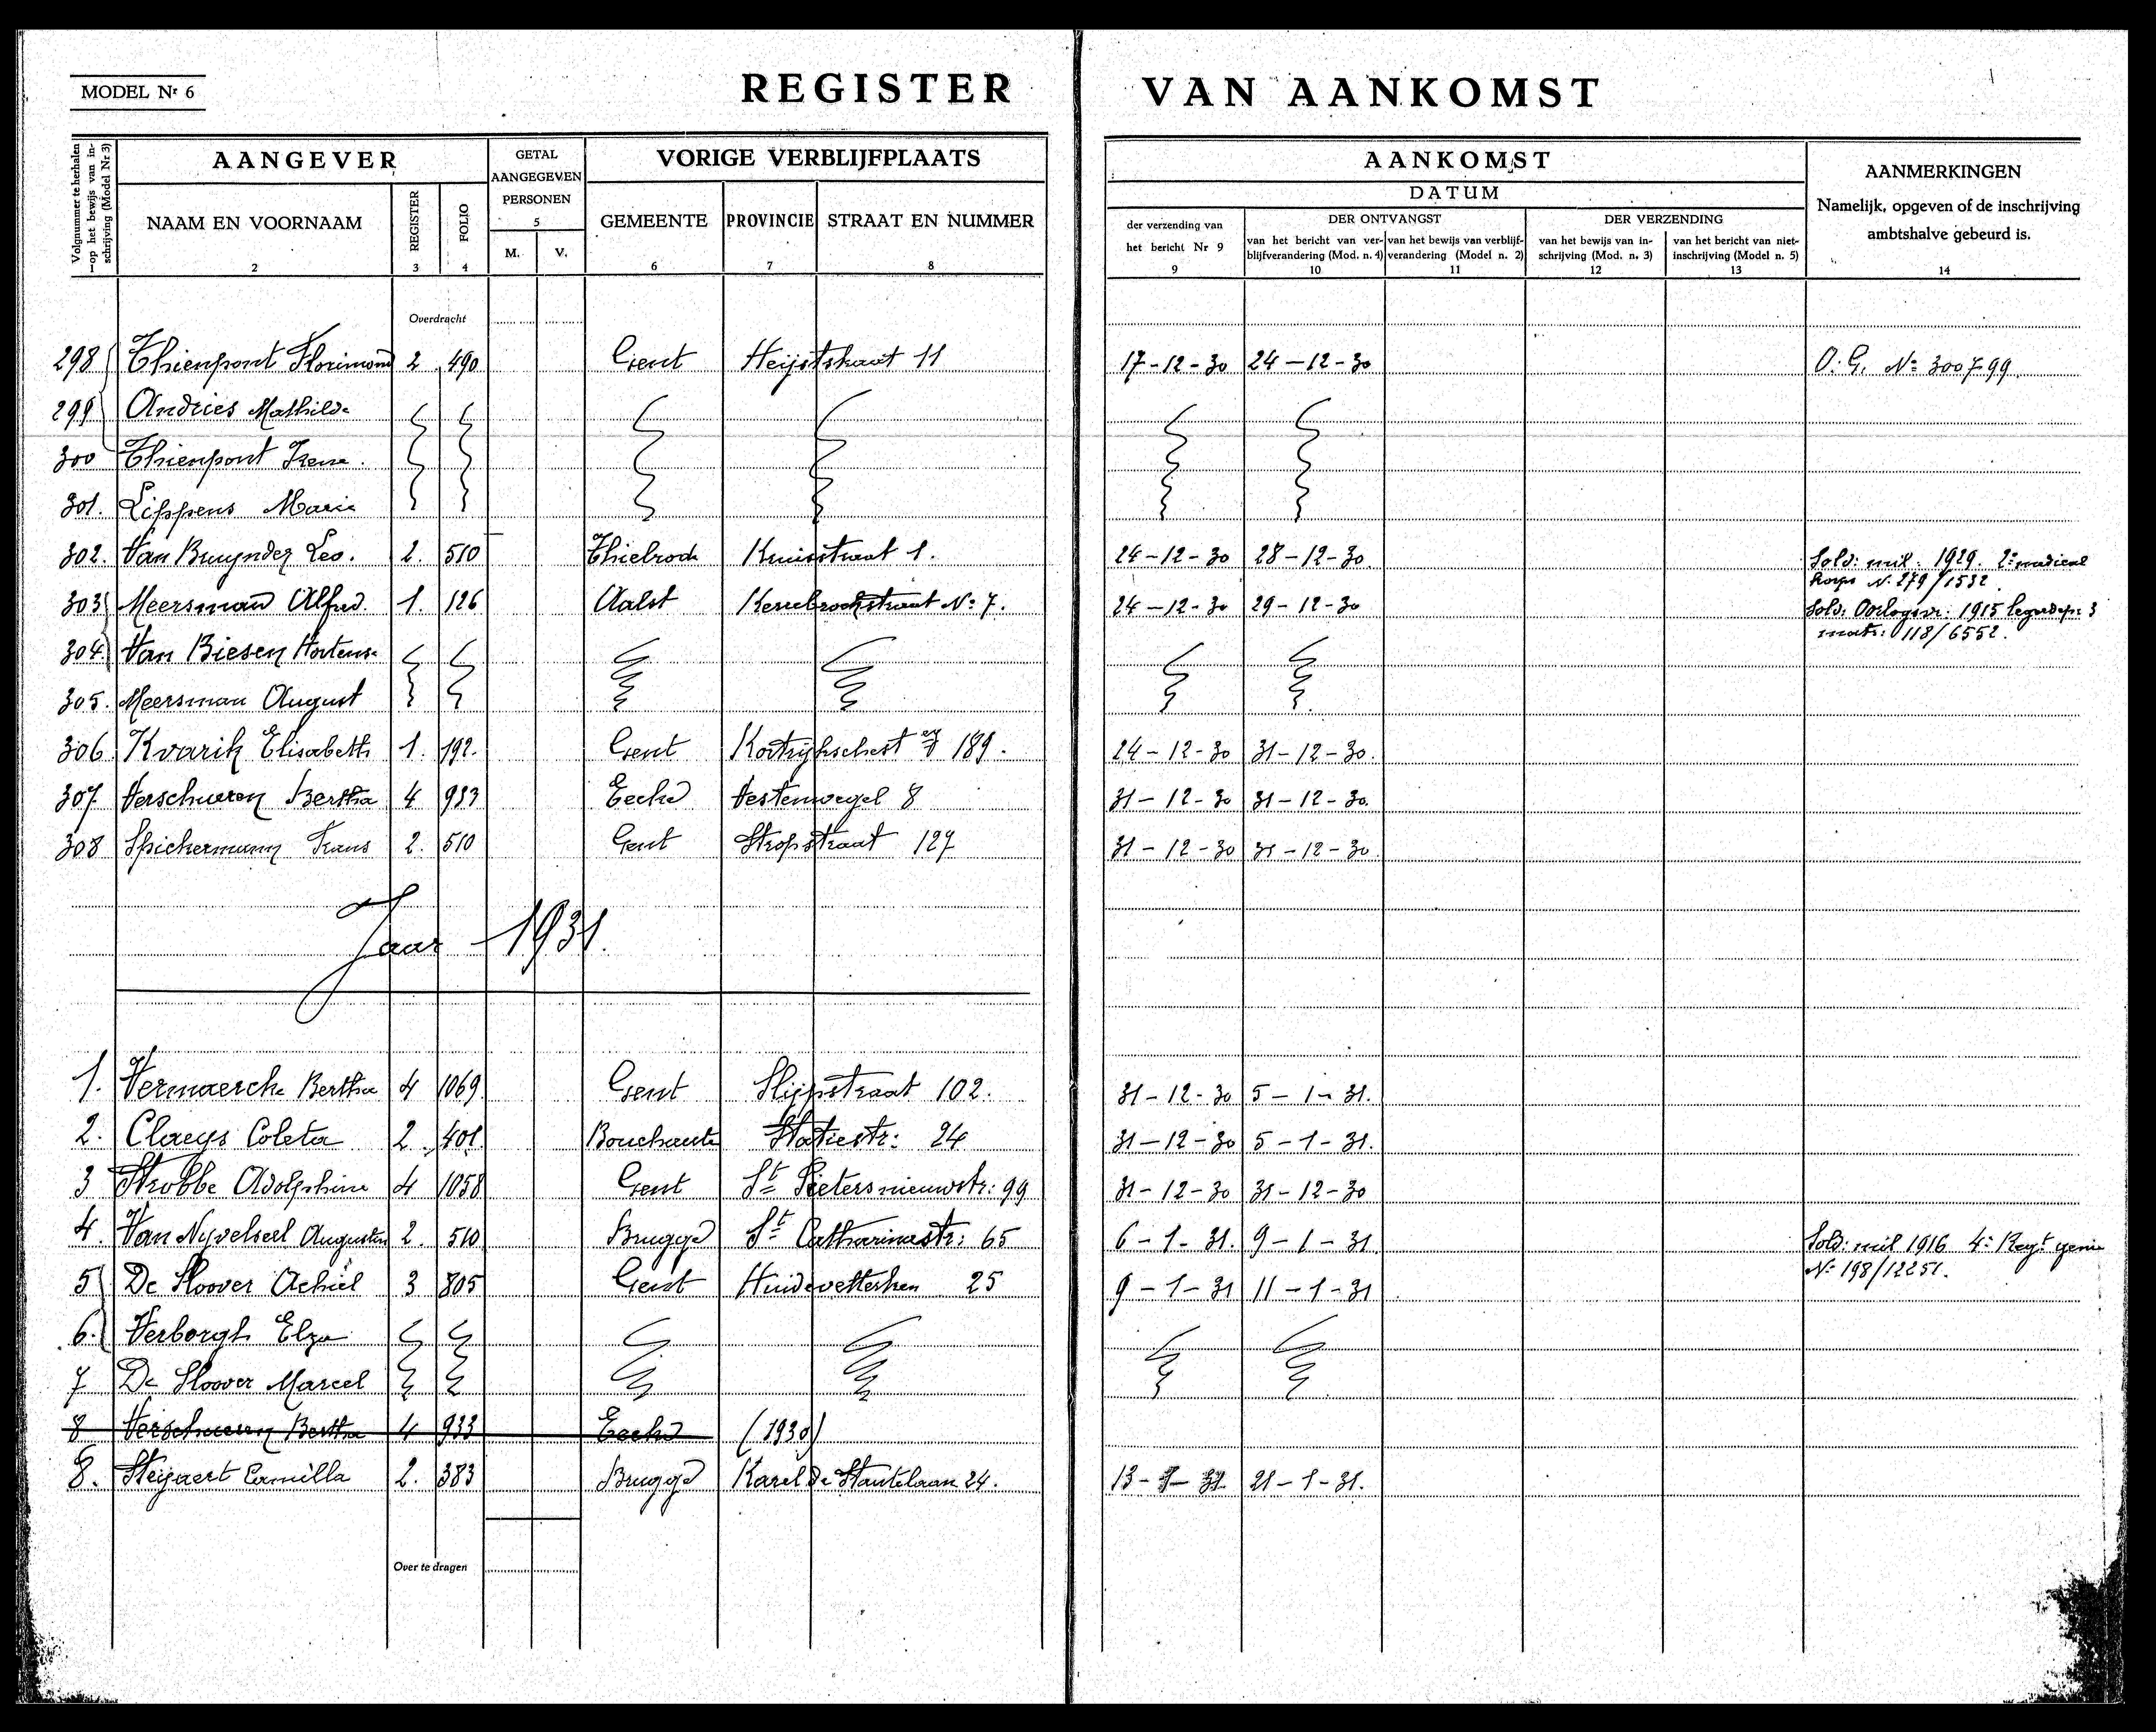 MODEL Nr 6
REGISTER VAN AANKOMST
Volgnummer te herhalen op het bewijs van inschrijving (Model Nr 3)
AANGEVER
GETAL AANGEGEVEN PERSONEN
VORIGE VERBLIJFPLAATS
AANKOMST
DATUM
AANMERKINGEN
Namelijk, opgeven of de inschrijving ambtshalve gebeurd is.
NAAM EN VOORNAAM REGISTER FOLIO M. V. GEMEENTE PROVINCIE STRAAT EN NUMMER
der verzending van het bericht Nr 9
DER ONTVANGST
van het bericht van verblijfverandering (Mod. n. 4) van het bewijs van verblijfverandering (Model n. 2)
DER VERZENDING
van het bewijs van inschrijving (Mod. n. 3) van het bericht van niet-inschrijving (Model n. 5)
1 2 3 4 5 6 7 8 9 10 11 12 13 14
Overdracht
298 Thienpont Florimond 2 490 Gent Heijstskaat 11 17-12-30 24-12-30 O.G. No 300799
299 Andries Mathilde
300 Thienpont Irene.
301. Lippens Marie
302. Van Bruynder Leo. 2. 510 Thielrode Kruisstraat 1. 24-12-30 28-12-30. Sold: mil: 1929. 2e medical
korps N. 279/1532.
303 Meersman Alfred. 1. 126 Aalst No 7. 24-12-30 29-12-30 Sold: 1915 3
matr: 118/6552.
304. Van Biesen Hortense
305. Meersman August
306. Kvarik Elisabeth 1. 192. Gent 189. 24-12-30 31-12-30.
307 Verschueren Bertha 4 933 Eecke Vestenwegel 8 31-12-30 31-12-30.
308 Spichermunn Frans 2. 510 Gent Stropstraat 127 31-12-30 31-12-30.
Jaar 1931.
1. Vermaercke Bertha 4 1069. Gent Slijpstraat 102. 31-12-30 5-1-31.
2. Claeys Coleta 2. 401 Bouchaute Statiestr: 24 31-12-30 5-1-31.
3 Strobbe Adolphine 4 1058 Gent St Pietersnieuwstr: 99 31-12-30 31-12-30
4. Van Nyvelseel Augusten 2. 510 Brugge St Catharinastr: 65 6-1-31. 9-1-31 Sold: mil 1916 4e Regt genie
No 198/12251.
5 De Sloover Achiel 3 805 Gent Huidevettersken 25 9-1-31 11-1-31
6. Verborgh Elza
7 De Sloover Marcel
8 Verschueren Bertha 4 933 Eecke (1930)
8. Steyaert Camilla 2. 383 Brugge Karel De Stautelaan 24. 13-1-31. 21-1-31.
Over te dragen